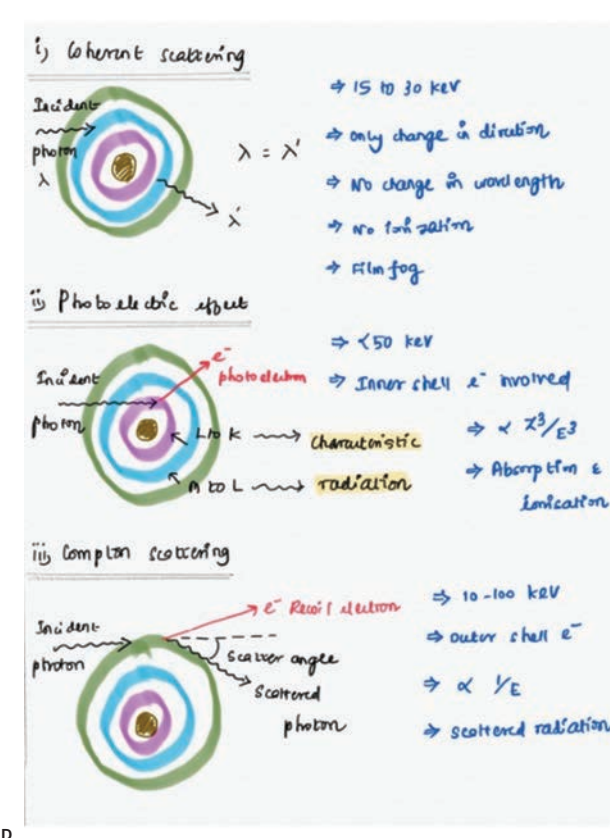 i) Coherent scattering
Incident
photon
λ
λ = λ'
λ'
⇒ 15 to 30 keV
⇒ only change in direction
⇒ No change in wavelength
⇒ No ionization
⇒ Film fog
ii) Photoelectric effect
Incident
photon
e⁻
photoelectron
L to K
M to L
characteristic
radiation
⇒ <50 keV
⇒ Inner shell e⁻ involved
⇒ ∝ Z³/E³
⇒ Absorption &
ionisation
iii) Compton scattering
Incident
photon
e⁻ Recoil electron
scatter angle
Scattered
photon
⇒ 10-100 keV
⇒ outer shell e⁻
⇒ ∝ 1/E
⇒ scattered radiation
D